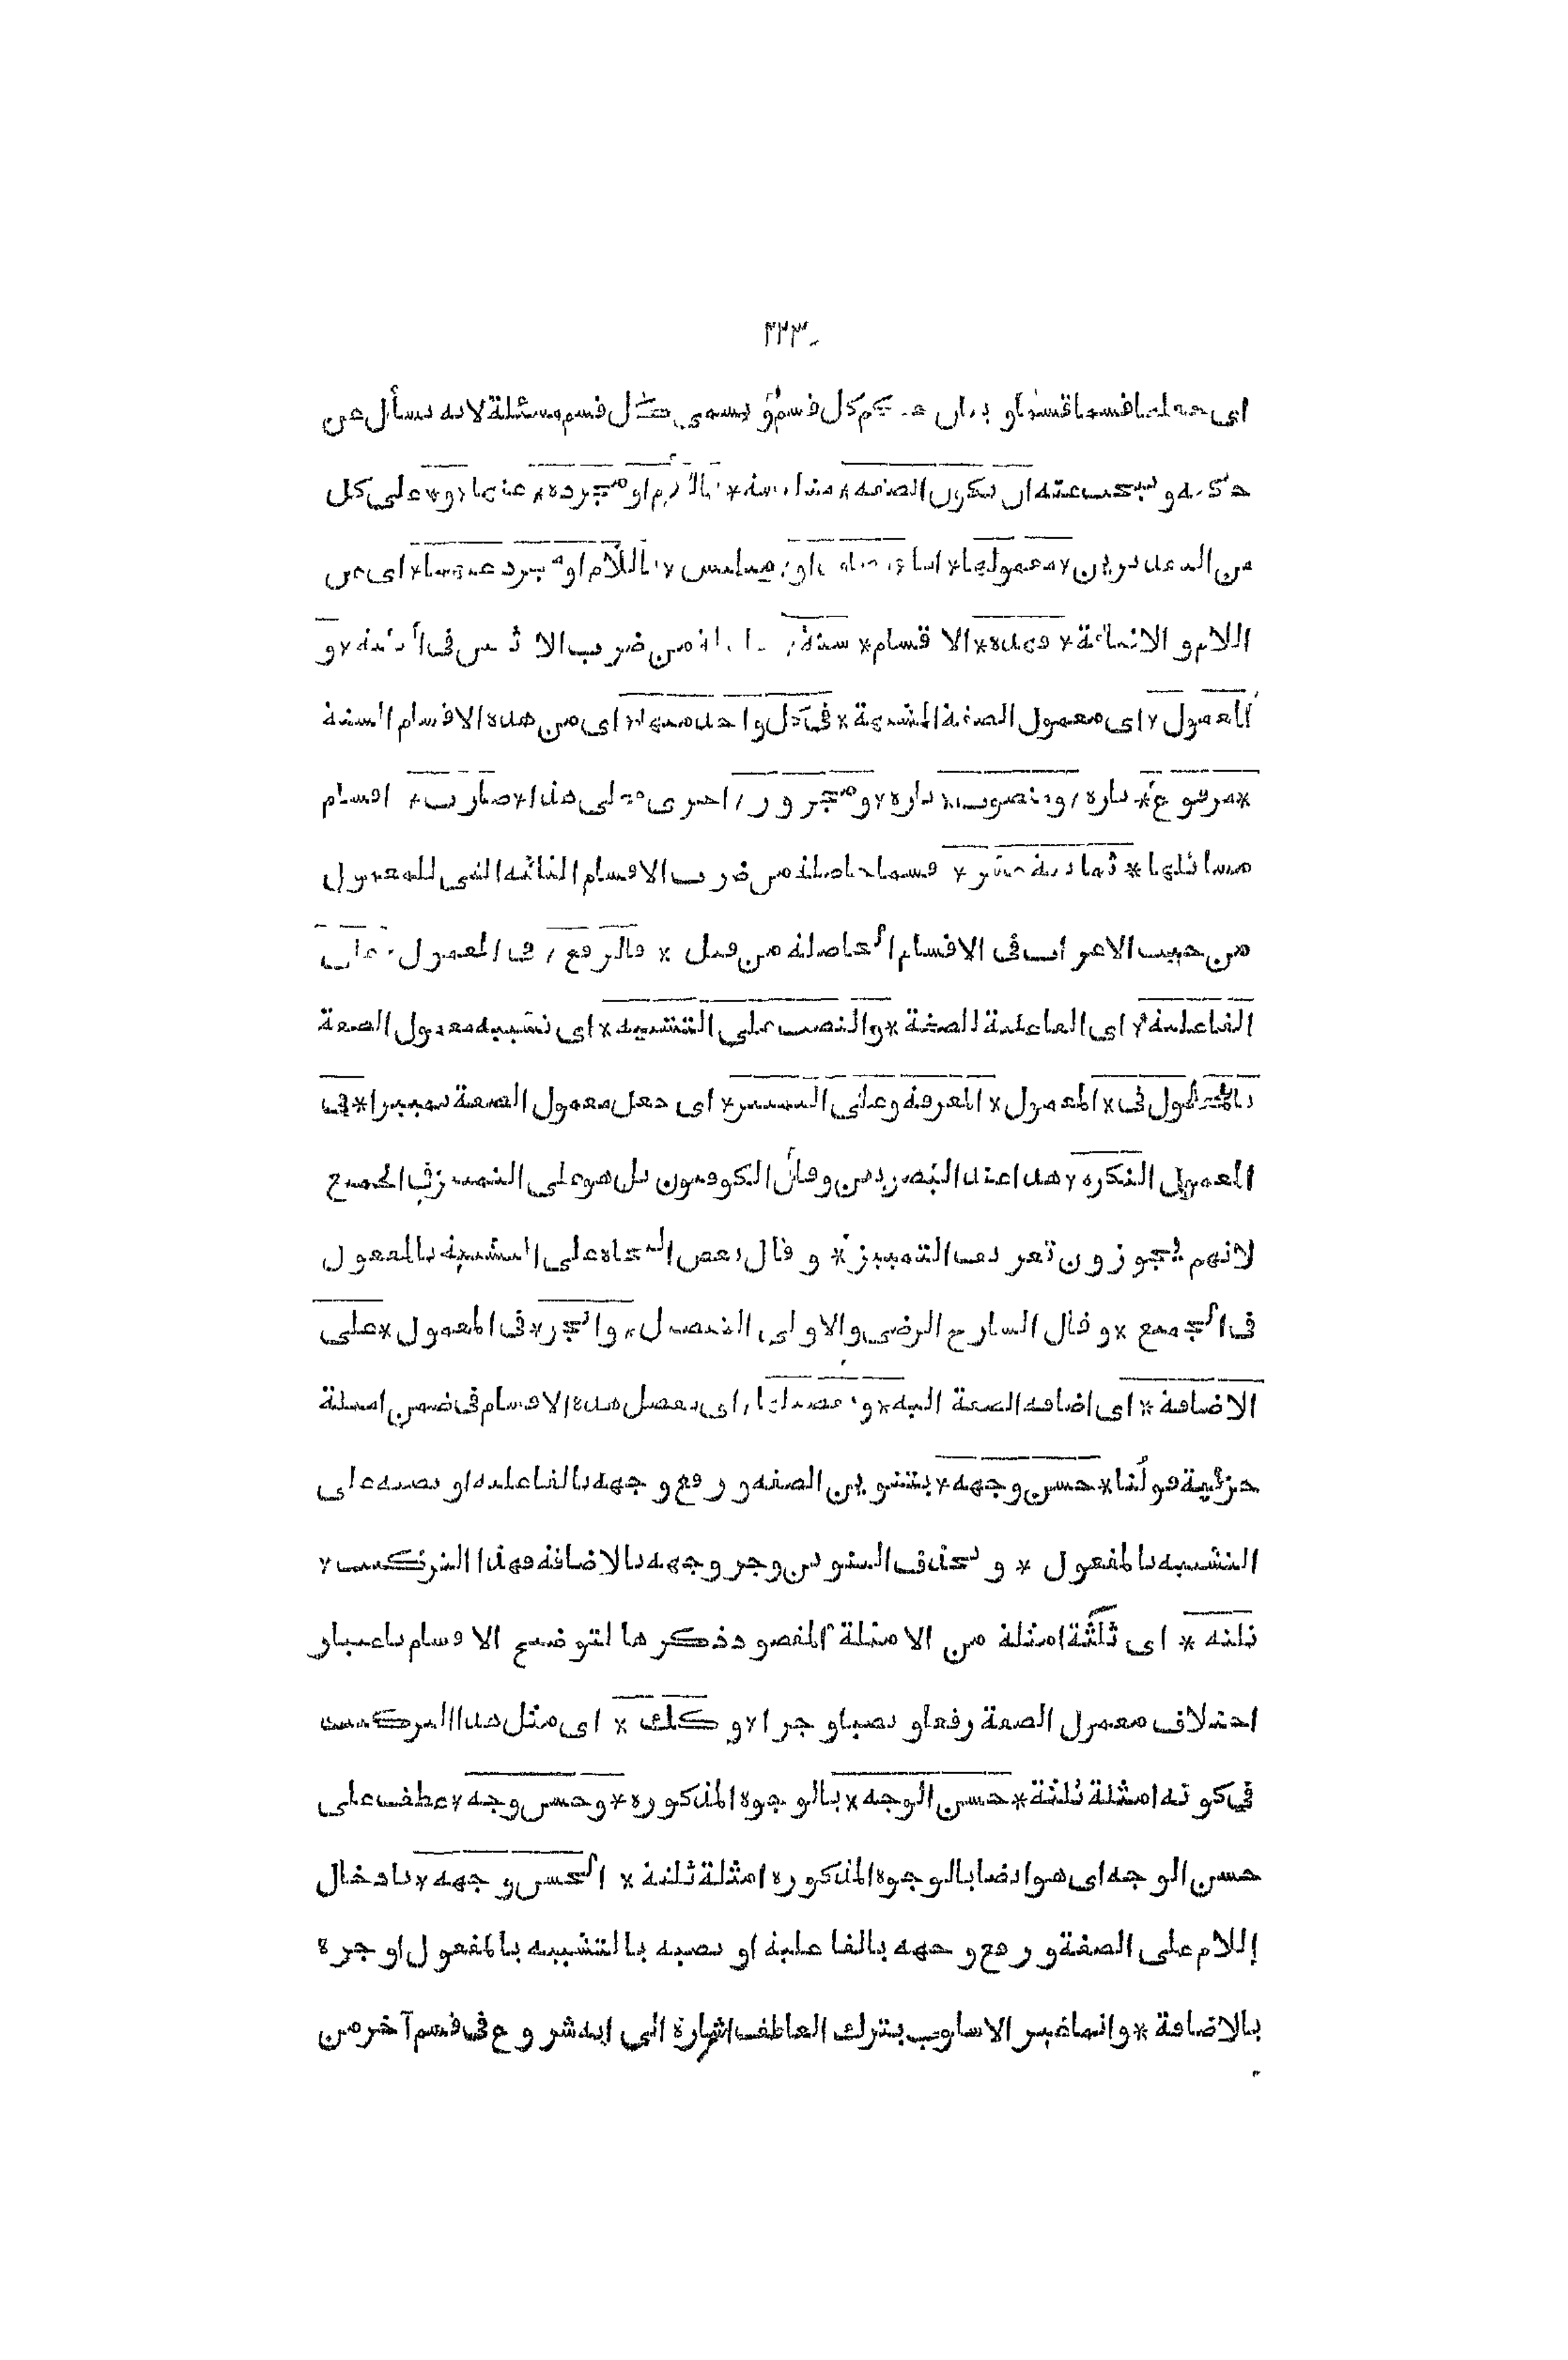 ٣٢٣
اى جعلها قسما قسما و بيان حكم كل قسم و يسمى كل قسم مسئلة لانه يسأل عن
حكمه و يبحث عنه ان تكون الصفة * متلبسة * باللام او مجردة * عنها * و * على كل
من التقديرين * معمولها * اما مضاف * او * متلبس * باللام او مجرد عنهما * اى عن
اللام و الاضافة * فهذه * الاقسام * ستة * من ضرب الاثنين فى الثلثة * و
المعمول * اى معمول الصفة المشبهة * فى كل واحد منها * اى من هذه الاقسام الستة
* مرفوع * تارة * و منصوب * تارة * و مجرور * اخرى * فعلى هذا * صارت * اقسام
مسائلها * ثمانية عشر * قسما حاصلة من ضرب الاقسام الثلثة التى للمعمول
من حيث الاعراب فى الاقسام الحاصلة من قبل * فالرفع * فى المعمول * على
الفاعلية * اى الفاعلية للصفة * والنصب على التشبيه * اى تشبيه معمول الصفة
بالمفعول فى * المعمول * المعرفة وعلى التمييز * اى جعل معمول الصفة تمييزا * فى
المعمول النكرة * هذا عند البصريين وقال الكوفيون بل هو على التمييز فى الجميع
لانهم يجوزون تعريف التمييز * و قال بعض النحاة على التشبيه بالمفعول
فى الجميع * و قال الشارح الرضى والاولى التفصيل * والجر * فى المعمول * على
الاضافة * اى اضافة الصفة اليه * و تفصيلها * اى تفصيل هذه الاقسام فى ضمن امثلة
جزئية قولنا * حسن وجهه * بتنوين الصفة و رفع و جهه بالفاعلية او نصبه على
التشبيه بالمفعول * و بحذف التنوين وجر وجهه بالاضافة فهذا التركيب *
ثلثة * اى ثلثة امثلة من الامثلة المقصود ذكرها لتوضيح الاقسام باعتبار
اختلاف معمول الصفة رفعا و نصبا و جرا * و كذلك * اى مثل هذا التركيب
فى كونه امثلة ثلثة * حسن الوجه * بالوجوه المذكورة * و حسن وجه * عطف على
حسن الوجه اى هو ايضا بالوجوه المذكورة امثلة ثلثة * الحسن وجهه * بادخال
اللام على الصفة و رفع و جهه بالفاعلية او نصبه بالتشبيه بالمفعول او جره
بالاضافة * و انما غير الاسلوب بترك العاطف اشارة الى انه شروع فى قسم آخر من